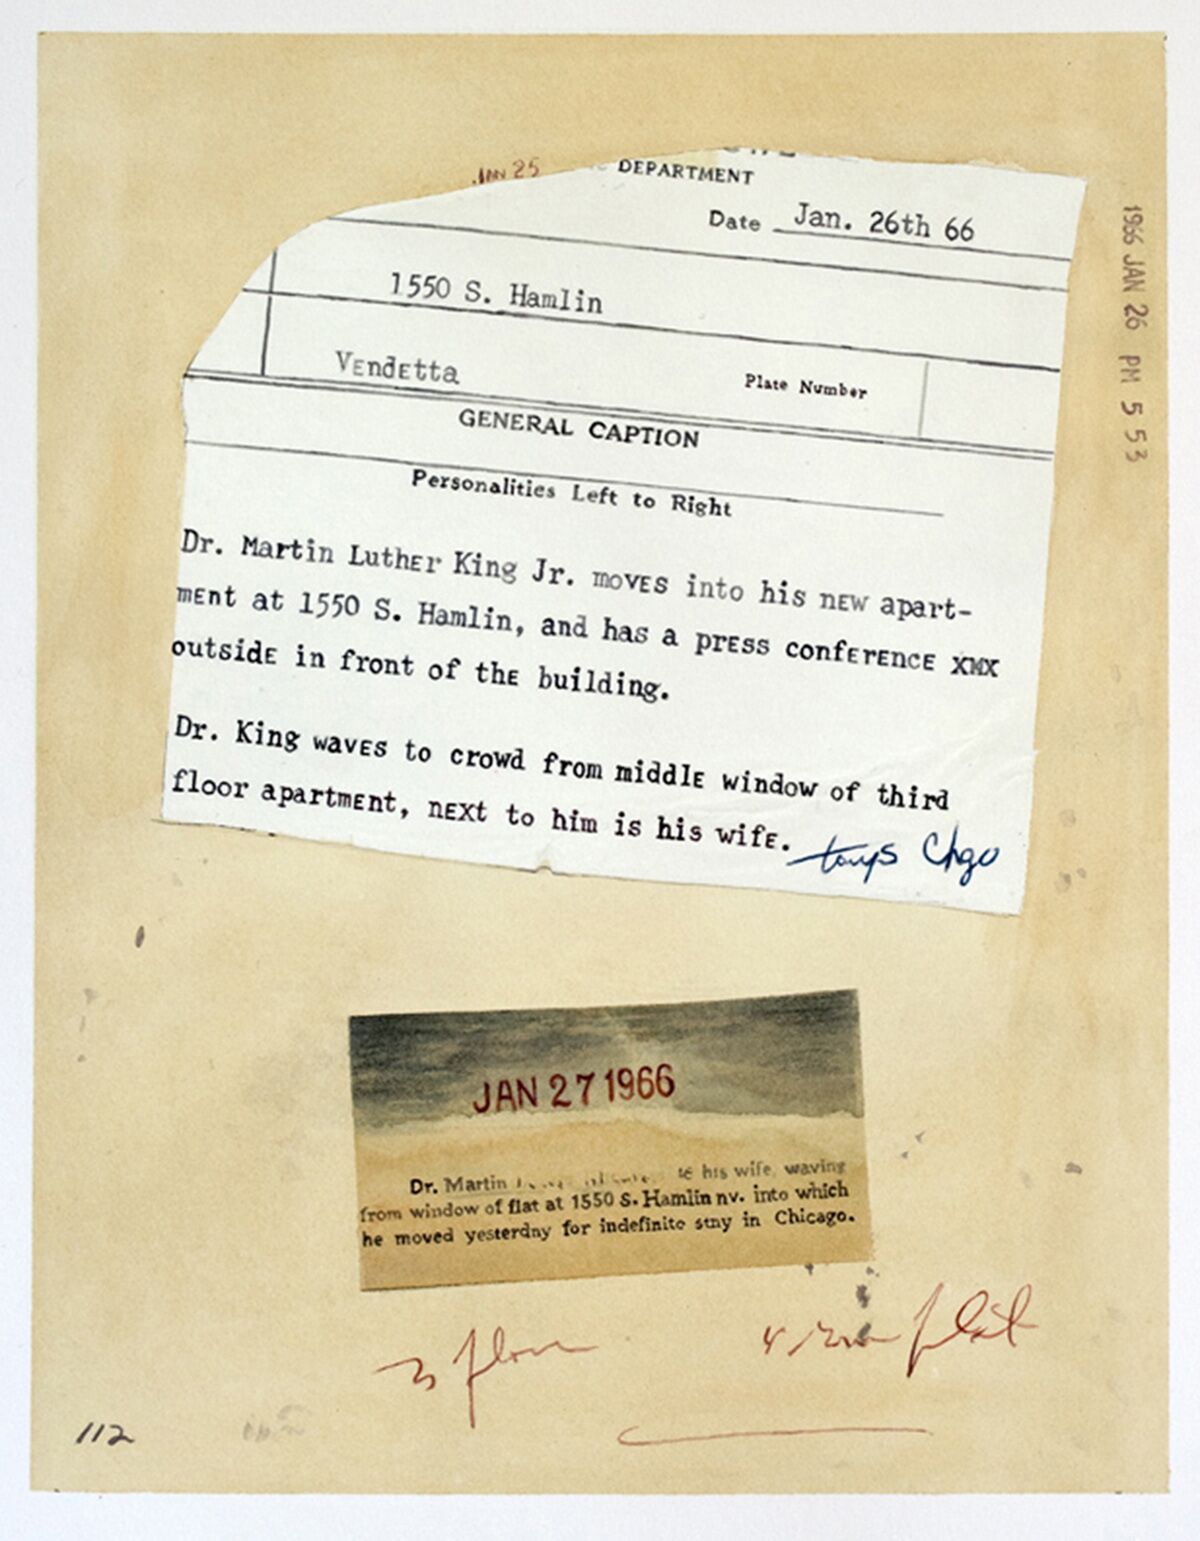 JAN 25
DEPARTMENT
Date Jan. 26th 66
1966 JAN 26 PM 5 53
1550 S. Hamlin
Vendetta
Plate Number
GENERAL CAPTION
Personalities Left to Right
Dr. Martin Luther King Jr. moves into his new apart-
ment at 1550 S. Hamlin, and has a press conference XMX
outside in front of the building.
Dr. King waves to crowd from middle window of third
floor apartment, next to him is his wife.
Chgo
JAN 27 1966
Dr. Martin his wife, waving
from window of flat at 1550 S. Hamlin nv. into which
he moved yesterday for indefinite stay in Chicago.
3 floor
4 flat
112